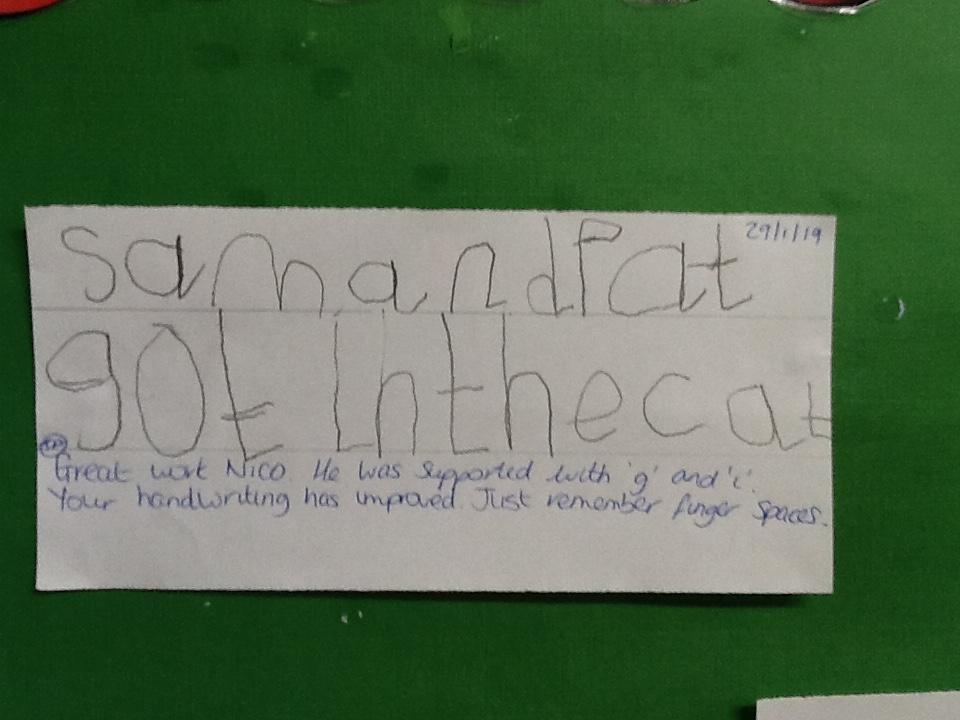 29/1/19
samandPat
gotinthecat
Great work Nico. He was supported with 'g' and 'i'.
Your handwriting has improved. Just remember finger spaces.